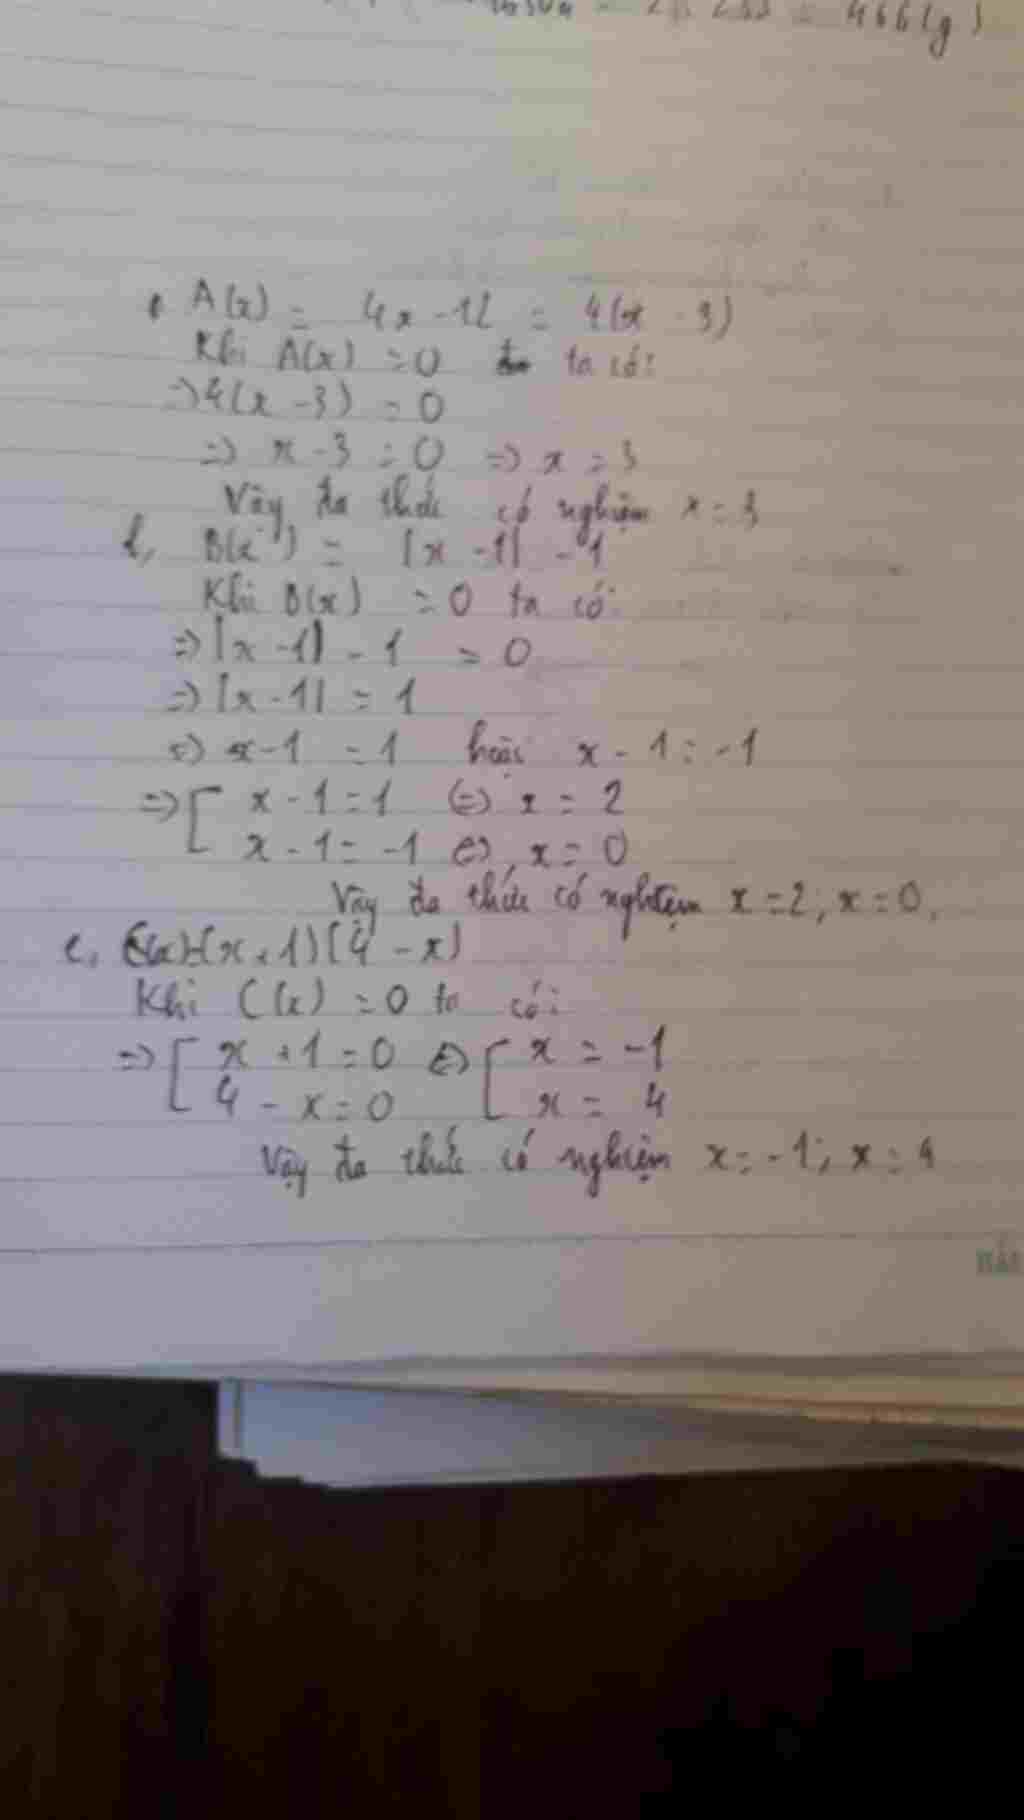 = 466(g)
A(x) = 4x - 12 = 4(x - 3)
Khi A(x) = 0 ta có:
=> 4(x - 3) = 0
=> x - 3 = 0 => x = 3
Vậy đa thức có nghiệm x = 3
b, B(x) = |x - 1| - 1
Khi B(x) = 0 ta có:
=> |x - 1| - 1 = 0
=> |x - 1| = 1
=> x - 1 = 1 hoặc x - 1 = -1
=> [ x - 1 = 1 <=> x = 2
x - 1 = -1 <=> x = 0
Vậy đa thức có nghiệm x = 2; x = 0.
c, C(x) = (x + 1)(4 - x)
Khi C(x) = 0 ta có:
=> [ x + 1 = 0 <=> [ x = -1
4 - x = 0 x = 4
Vậy đa thức có nghiệm x = -1; x = 4